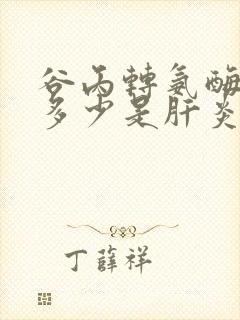 谷丙轉氨酶
多少是肝炎
丁薛祥